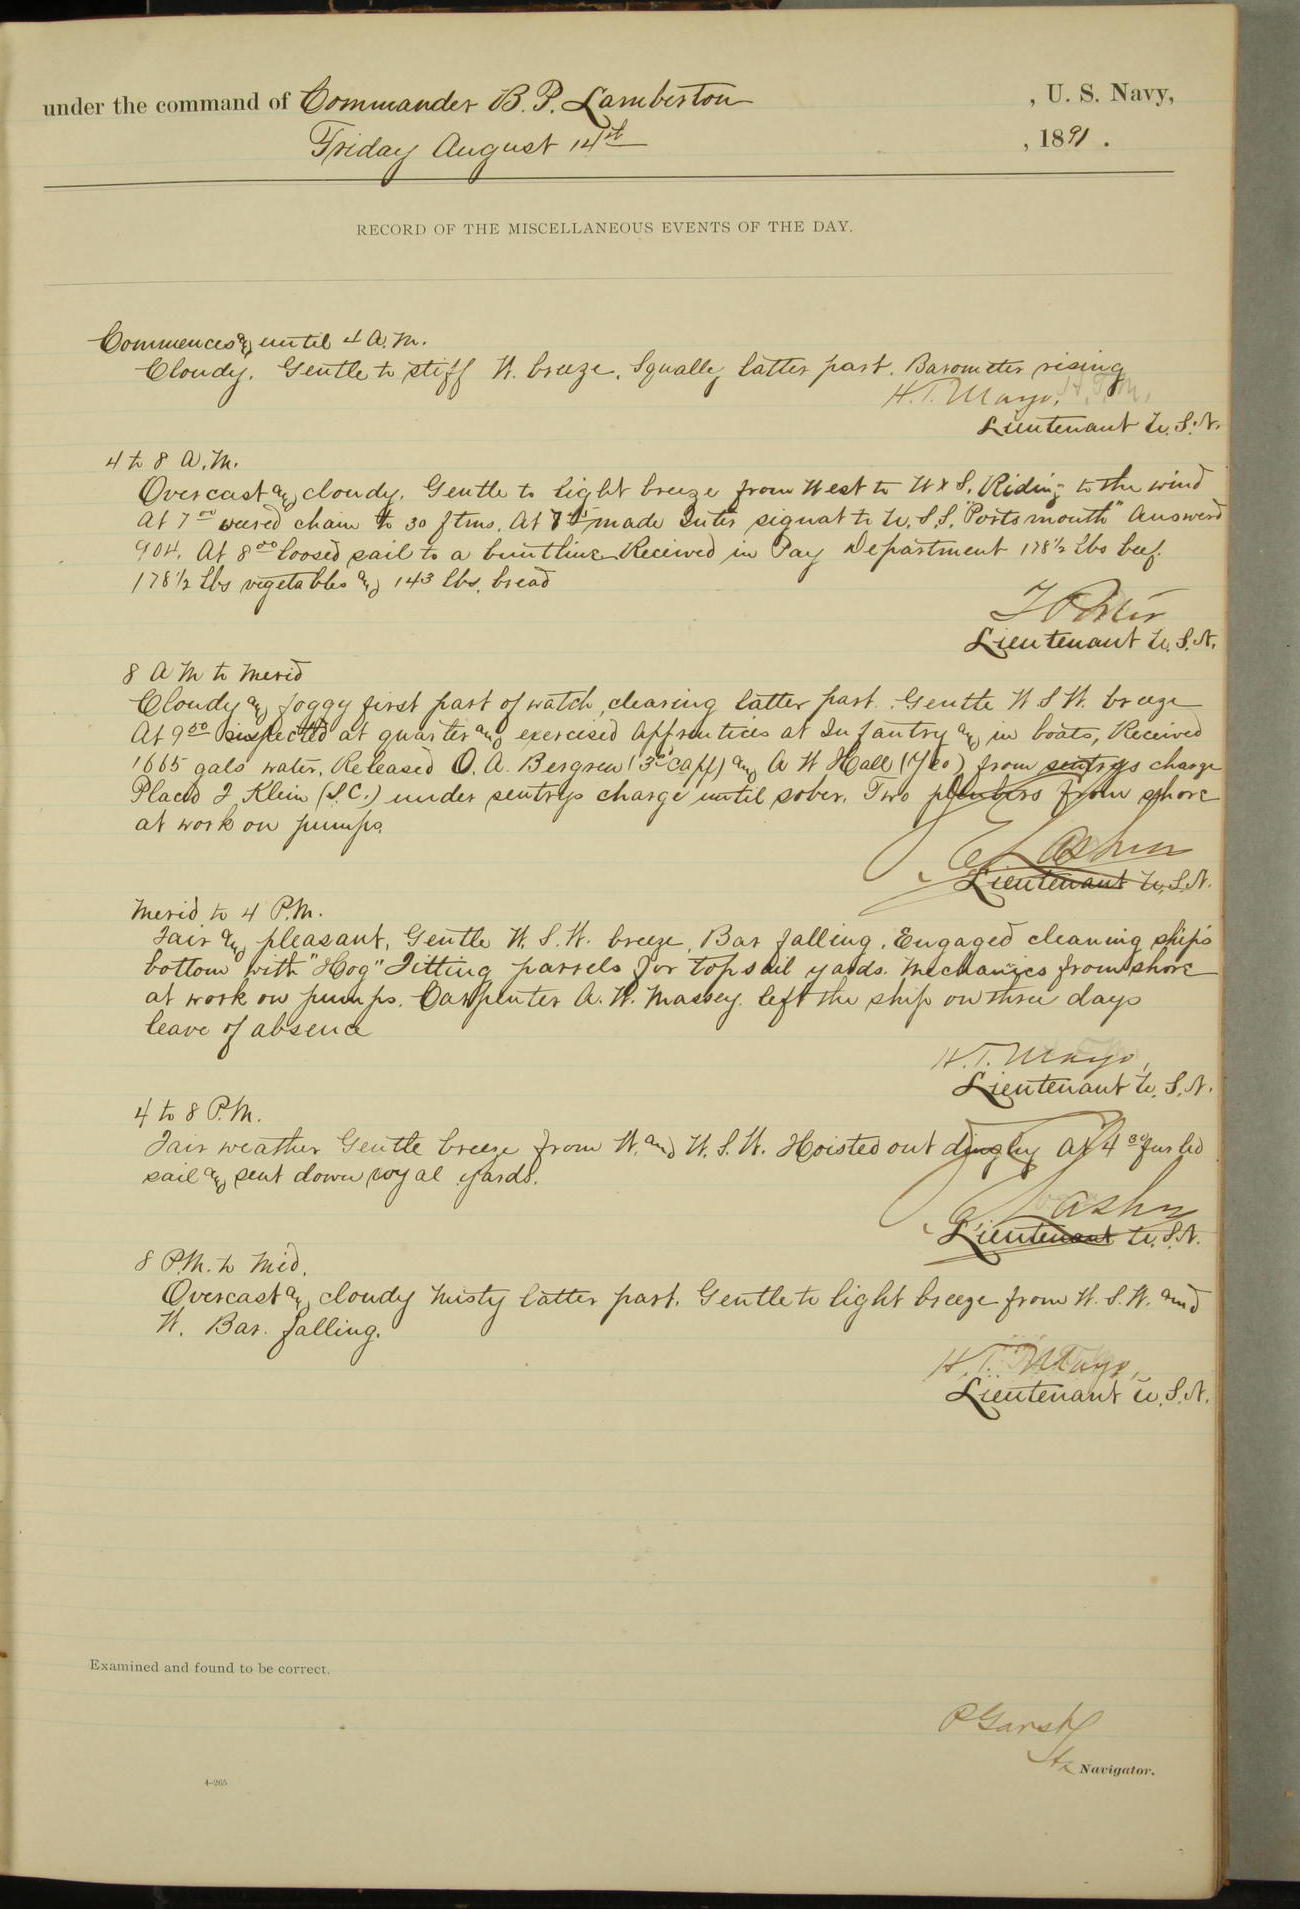 under the command of Commander B. P. Lamberton , U. S. Navy,
Friday August 14th , 1891 .
RECORD OF THE MISCELLANEOUS EVENTS OF THE DAY.
Commences and until 4 A.M.
Cloudy. Gentle to stiff W. breeze. Squally latter part. Barometer rising
H. T. Mayo,
Lieutenant U.S.N.
4 to 8 A.M.
Overcast and cloudy. Gentle to light breeze from West to W x S. Riding to the wind
At 7 00 veered chain to 30 ftms. At made Inter signal to U.S.S. "Portsmouth" Answerd
904. At 8 00 loosed sail to a buntline Received in Pay Department 178½ Lbs beef.
178½ Lbs vegetables and 143 lbs. bread
Lieutenant U.S.N.
8 A M to Merid
Cloudy and foggy first part of watch, clearing latter part. Gentle W S W. breeze
At 9 00 inspected at quarter and exercised Apprentices at Infantry and in boats, Received
1665 gals water. Released O. A. Bergren (3d c App) and A W Hall (Yeo) from sentrys charge
Placed J Klein (S.C.) under sentrys charge until sober. Two plumbers from shore
at work on pumps.
Lieutenant U.S.N.
Merid to 4 P.M.
Fair and pleasant, Gentle W. S. W. breeze. Bar falling. Engaged cleaning ship's
bottom with "Hog" Fitting parrels for topsail yards. Mechanics from shore
at work on pumps. Carpenter A. W. Massey left the ship on three days
leave of absence
H. T. Mayo,
Lieutenant U.S.N.
4 to 8 P.M.
Fair weather Gentle breeze from W. and W. S. W. Hoisted out dinghy At 4 30 furled
sail and sent down royal yards.
Lieutenant U.S.N.
8 P.M. to Mid.
Overcast and cloudy Misty latter part. Gentle to light breeze from W. S. W. and
W. Bar. falling.
H. T. Mayo,
Lieutenant U.S.N.
Examined and found to be correct.
P Garst
Navigator.
4-265